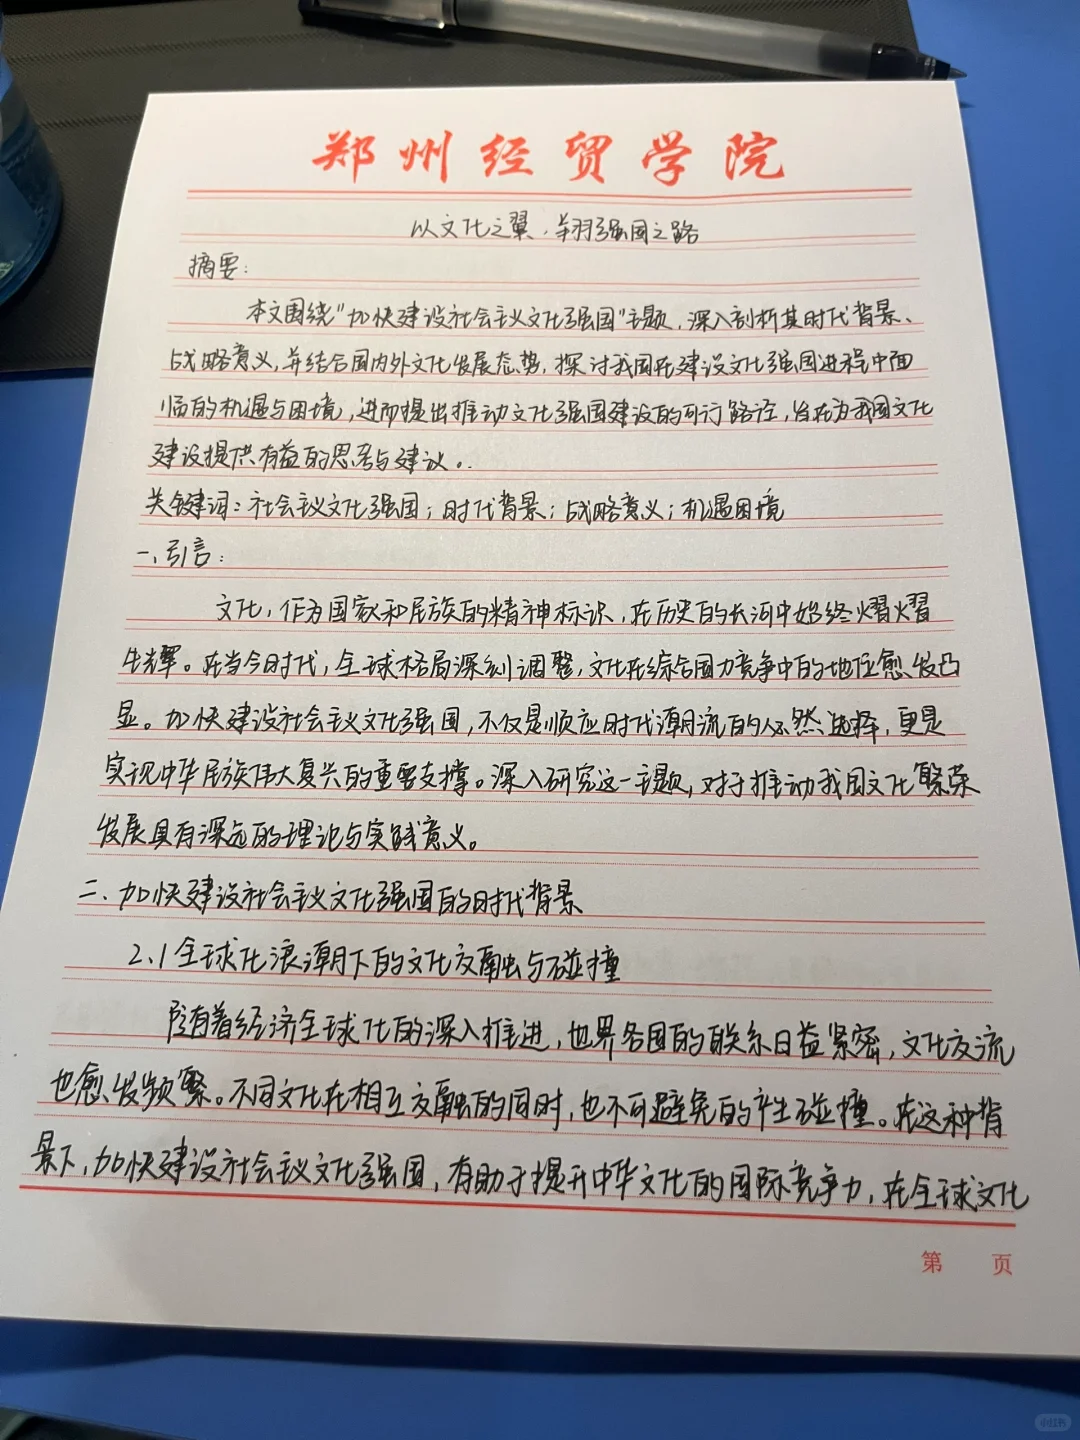 郑州经贸学院
以文化之翼,翔强国之路
摘要:
本文围绕"加快建设社会主义文化强国"主题,深入剖析其时代背景、
战略意义,并结合国内外文化发展态势,探讨我国在建设文化强国进程中面
临的机遇与困境,进而提出推动文化强国建设的可行路径,旨在为我国文化
建设提供有益的思考与建议。
关键词:社会主义文化强国;时代背景;战略意义;机遇困境
一、引言:
文化,作为国家和民族的精神标识,在历史的长河中始终熠熠
生辉。在当今时代,全球格局深刻调整,文化在综合国力竞争中的地位愈发凸
显。加快建设社会主义文化强国,不仅是顺应时代潮流的必然选择,更是
实现中华民族伟大复兴的重要支撑。深入研究这一主题,对于推动我国文化繁荣
发展具有深远的理论与实践意义。
二、加快建设社会主义文化强国的时代背景
2.1全球化浪潮下的文化交融与碰撞
随着经济全球化的深入推进,世界各国的联系日益紧密,文化交流
也愈发频繁。不同文化在相互交融的同时,也不可避免的产生碰撞。在这种背
景下,加快建设社会主义文化强国,有助于提升中华文化的国际竞争力,在全球文化
第 页
小红书